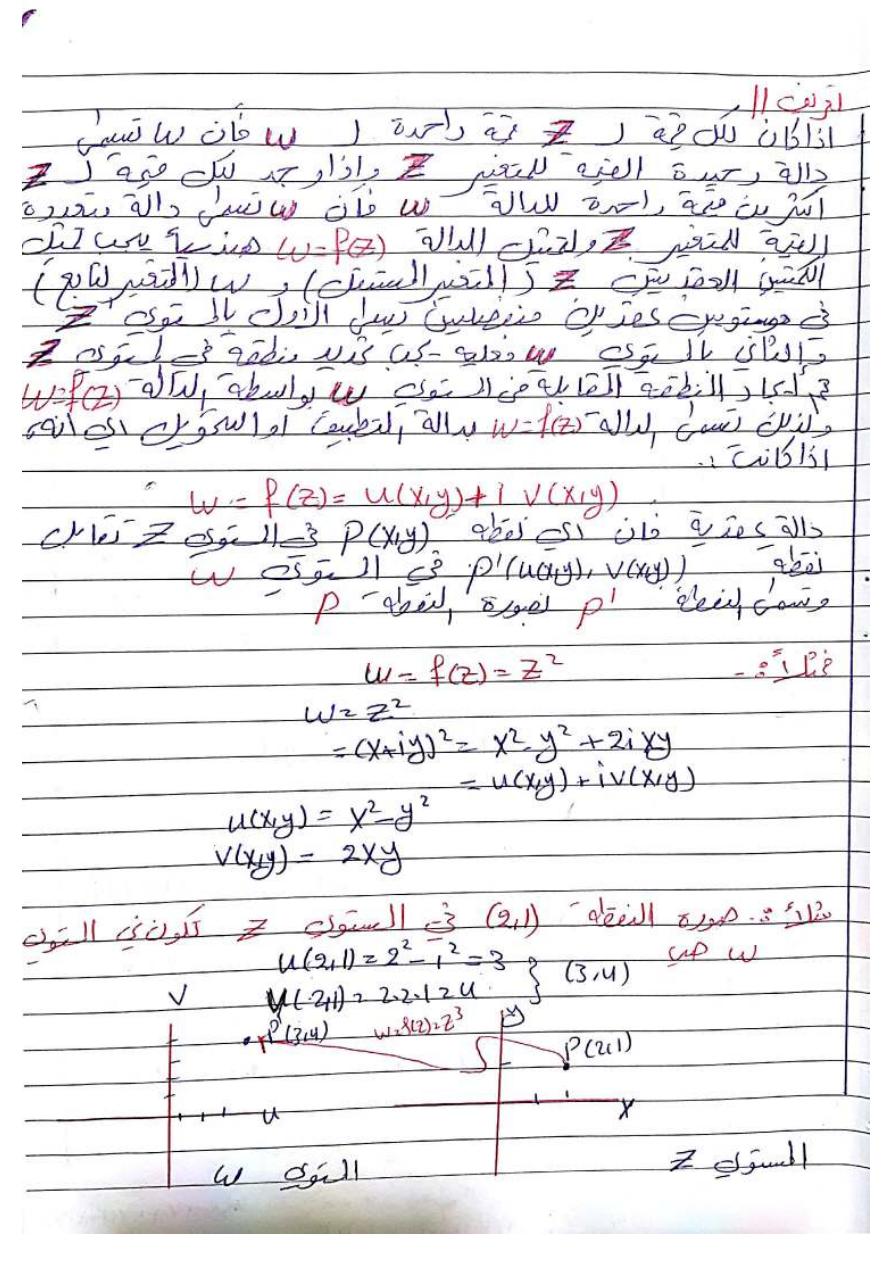 تعريف //
اذا كان لكل قيمة لـ Z قيمة واحدة لـ w فأن w تسمى
دالة وحيدة القيمة للمتغير Z واذا وجد لكل قيمة لـ Z
اكثر من قيمة واحدة للدالة w فأن w تسمى دالة متعددة
القيمة للمتغير Z ولتمثيل الدالة w=f(z) هندسياً يجب تمثيل
الكميتين العقديتين Z (المتغير المستقل) و w (المتغير التابع)
في مستويين عقديين منفصلين يسمى الاول بالمستوي Z
والثاني بالمستوي w وعليه يجب تحديد منطقة في المستوي Z
ثم أيجاد المنطقة المقابلة في المستوي w بواسطة الدالة w=f(z)
ولذلك تسمى الدالة w=f(z) بدالة التطبيق او التحويل اي انه
اذا كانت :.
w = f(z) = u(x,y) + i v(x,y)
دالة عقدية فان اي نقطة P(x,y) في المستوي Z تقابل
نقطة p'(u(x,y), v(x,y)) في المستوي w
وتسمى النقطة p' لصورة النقطة P
فمثلاً :-
w = f(z) = z²
w = z²
= (x+iy)² = x² - y² + 2ixy
= u(x,y) + iv(x,y)
u(x,y) = x² - y²
v(x,y) = 2xy
مثلاً :. صورة النقطة (2,1) في المستوي Z تكون في المستوي
w هي
u(2,1) = 2² - 1² = 3
v(2,1) = 2.2.1 = 4 } (3,4)
V
P'(3,4) w=f(z)=z³
y
P(2,1)
u
x
المستوي w المستوي Z